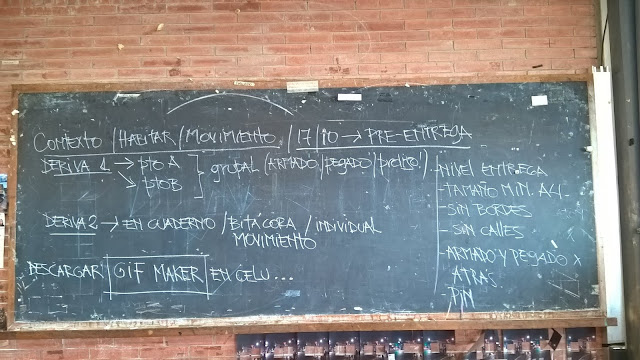 CONTEXTO / HABITAR / MOVIMIENTO / 17/10 → PRE-ENTREGA
DERIVA 1 → pto A
↘ pto B
grupal (ARMADO/PEGADO/prolijo!)
DERIVA 2 → EN CUADERNO / BITÁCORA / INDIVIDUAL
MOVIMIENTO
DESCARGAR GIF MAKER EN CELU...
- NIVEL ENTREGA
- TAMAÑO MIN. A4
- SIN BORDES
- SIN CALLES
- ARMADO Y PEGADO X
ATRÁS